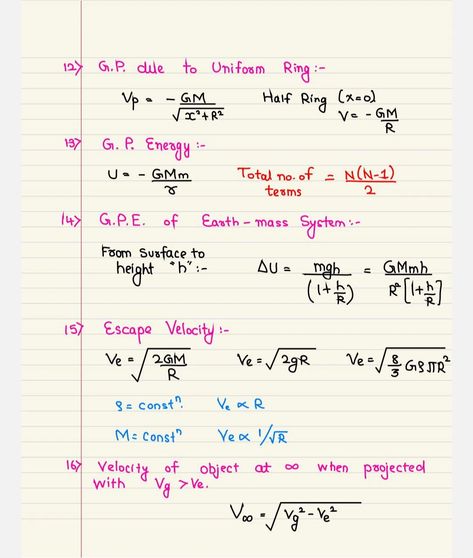 12) G.P. due to Uniform Ring :-
Vp = - GM / √(x²+R²)   Half Ring (x=0)
V = - GM / R
13) G. P. Energy :-
U = - GMm / r   Total no. of terms = N(N-1) / 2
14) G.P.E. of Earth-mass System :-
From Surface to
height "h" :-   ΔU = mgh / (1+h/R) = GMmh / R²[1+h/R]
15) Escape Velocity :-
Ve = √(2GM/R)   Ve = √2gR   Ve = √(8/3 Gρ π R²)
ρ = constⁿ.   Ve ∝ R
M = constⁿ   Ve ∝ 1/√R
16) Velocity of object at ∞ when projected
with Vg > Ve.
V∞ = √(Vg² - Ve²)